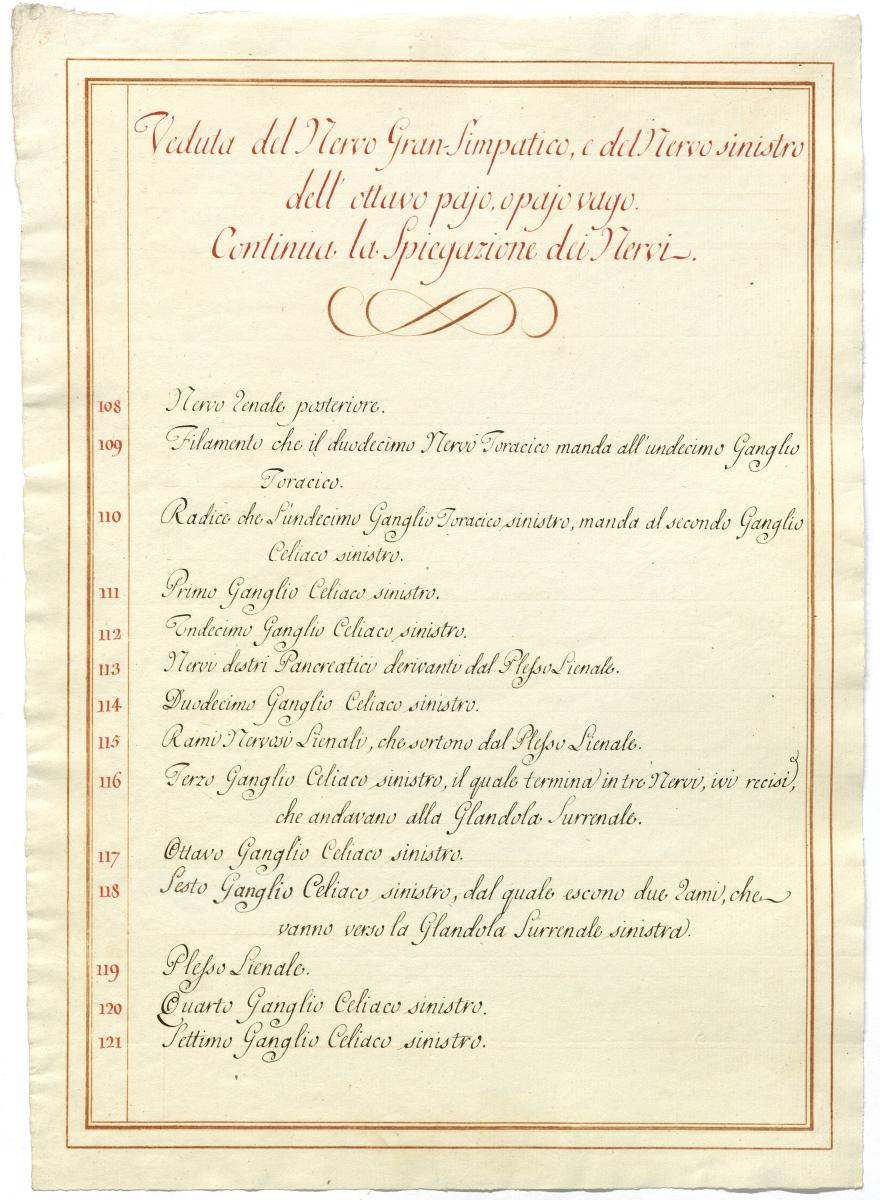 Veduta del Nervo Gran-Simpatico, e del Nervo sinistro
dell' ottavo pajo, o pajo vago.
Continua la Spiegazione dei Nervi.
108 Nervo renale posteriore.
109 Filamento che il duodecimo Nervo Toracico manda all'undecimo Ganglio
Toracico.
110 Radice che l'undecimo Ganglio Toracico sinistro, manda al secondo Ganglio
Celiaco sinistro.
111 Primo Ganglio Celiaco sinistro.
112 Undecimo Ganglio Celiaco sinistro.
113 Nervi destri Pancreatici derivanti dal Plesso Lienale.
114 Duodecimo Ganglio Celiaco sinistro.
115 Rami Nervosi Lienali, che sortono dal Plesso Lienale.
116 Terzo Ganglio Celiaco sinistro, il quale termina in tre Nervi, ivi recisi,
che andavano alla Glandola Surrenale.
117 Ottavo Ganglio Celiaco sinistro.
118 Sesto Ganglio Celiaco sinistro, dal quale escono due rami, che
vanno verso la Glandola Surrenale sinistra.
119 Plesso Lienale.
120 Quarto Ganglio Celiaco sinistro.
121 Settimo Ganglio Celiaco sinistro.